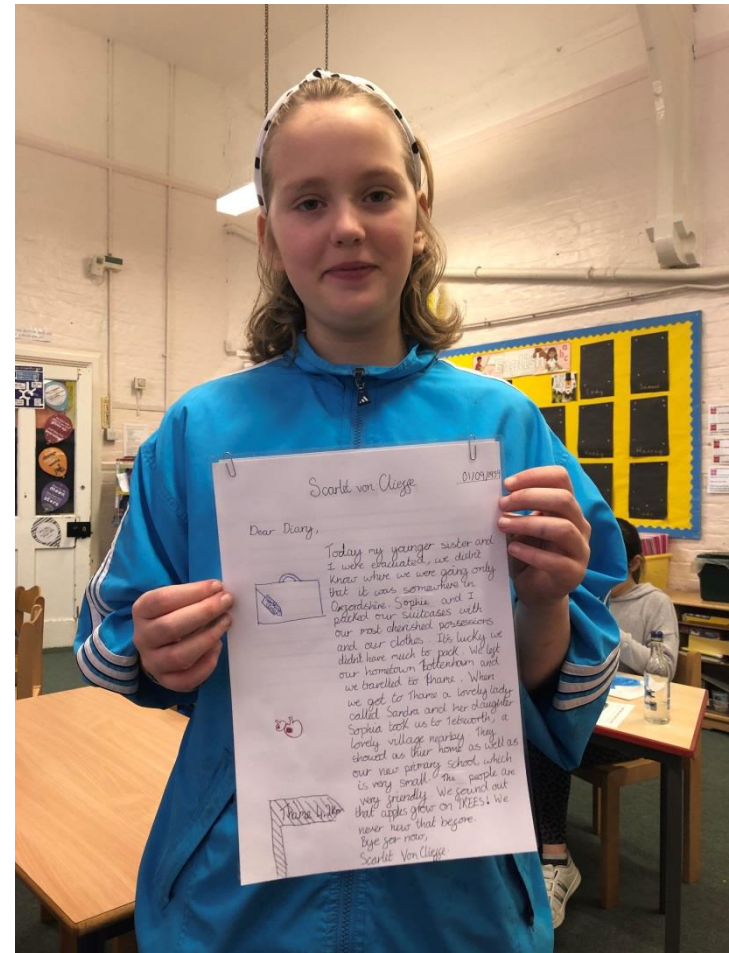 Scarlet von Cliegge
01/09/1939
Dear Diary,
Today my younger sister and
I were evacuated, we didn't
know where we were going only
that it was somewhere in
Oxfordshire. Sophie and I
packed our suitcases with
our most cherished possessions
and our clothes. It's lucky we
didn't have much to pack. We left
our hometown Tottenham and
we travelled to Thame. When
we got to Thame a lovely lady
called Sandra and her daughter
Sophia took us to Tetsworth, a
lovely village nearby. They
showed us thier home as well as
our new primary school which
is very small. The people are
very friendly. We found out
that apples grow on TREES! We
never new that before.
Bye for now,
Scarlet Von Cliegge.
Thame 4.2km